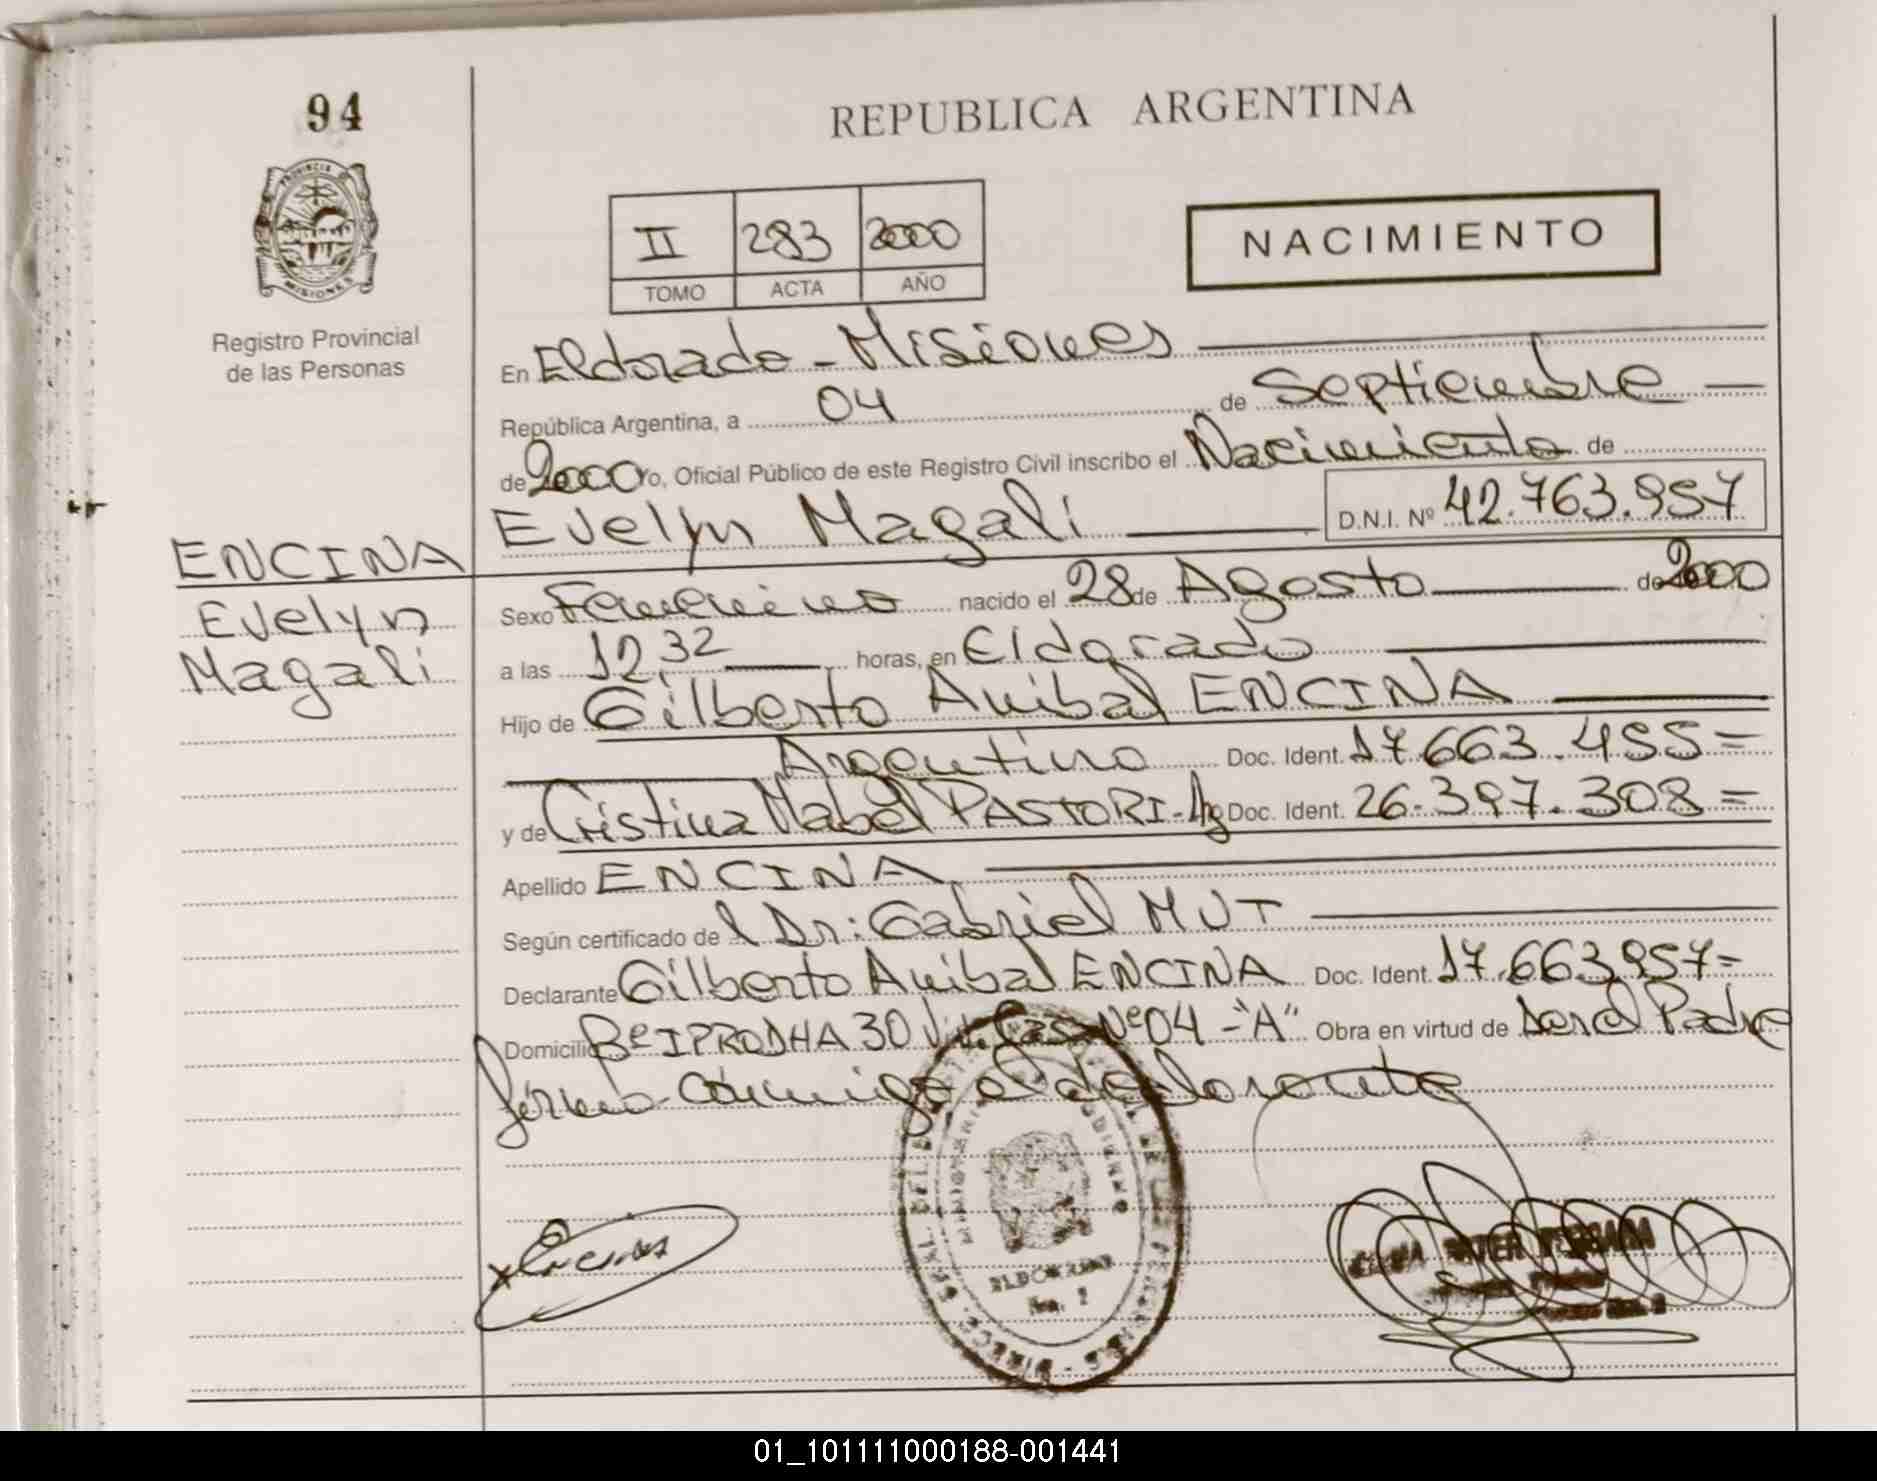 94
REPUBLICA ARGENTINA
PROVINCIA D
MISIONES
Registro Provincial
de las Personas
II 283 2000
TOMO ACTA AÑO
NACIMIENTO
En Eldorado - Misiones
República Argentina, a 04 de Septiembre
de 2000 Yo, Oficial Público de este Registro Civil inscribo el Nacimiento de
Evelyn Magali D.N.I. Nº 42.763.957
ENCINA
Evelyn
Magali
Sexo Femenino nacido el 28 de Agosto de 2000
a las 12,32 horas, en Eldorado
Hijo de Gilberto Anibal ENCINA
Argentino Doc. Ident. 17.663.455=
y de Cristina Mabel PASTORI-Ag Doc. Ident. 26.397.308=
Apellido ENCINA
Según certificado de l Dr: Gabriel MUT
Declarante Gilberto Anibal ENCINA Doc. Ident. 17.663.957=
Domicilio Bº IPRODHA 30 Viv. Casa Nº 04 - "A" Obra en virtud de ser el Padre
firma conmigo el declarante
ELDORADO
01_101111000188-001441